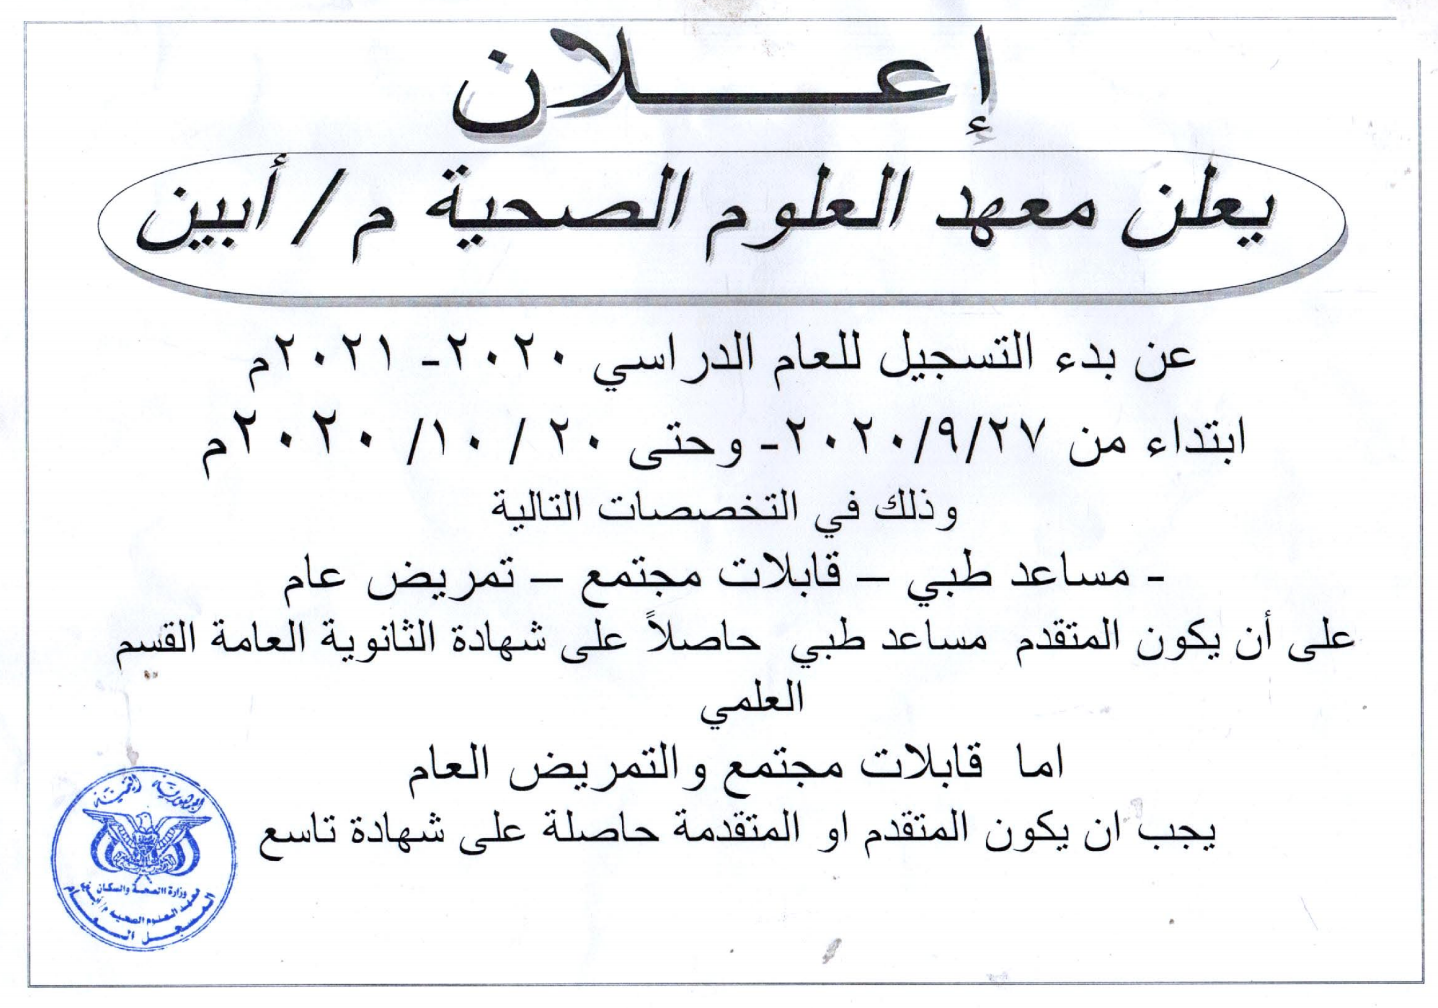 إعـــــــلان
يعلن معهد العلوم الصحية م / أبين
عن بدء التسجيل للعام الدراسي ٢٠٢٠- ٢٠٢١م
ابتداء من ٢٠٢٠/٩/٢٧- وحتى ٢٠ / ١٠/ ٢٠٢٠م
وذلك في التخصصات التالية
- مساعد طبي – قابلات مجتمع – تمريض عام
على أن يكون المتقدم مساعد طبي حاصلاً على شهادة الثانوية العامة القسم
العلمي
اما قابلات مجتمع والتمريض العام
يجب ان يكون المتقدم او المتقدمة حاصلة على شهادة تاسع
الجمهورية اليمنية
وزارة الصحة والسكان
معهد العلوم الصحية م/أبين
المسجل العام